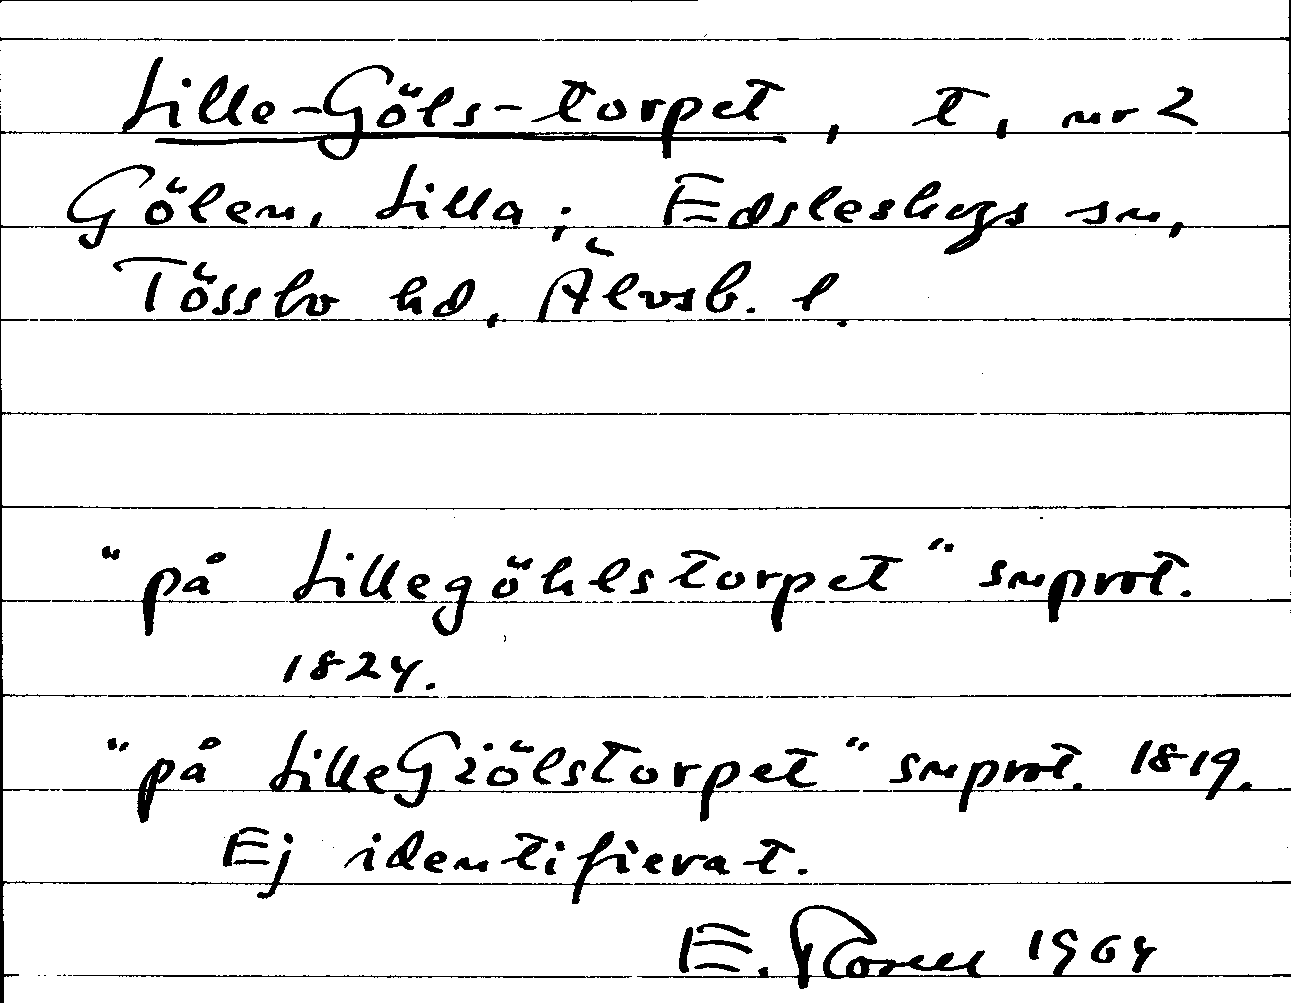 Lille-Göls-torpet, t, nr 2
Gölen, Lilla; Edsleskogs sn,
Tössbo hd, Älvsb. l.
"på Lillegöhlstorpet" snprot.
1824.
"på LilleGiölstorpet" snprot. 1819.
Ej identifierat.
E. 1964